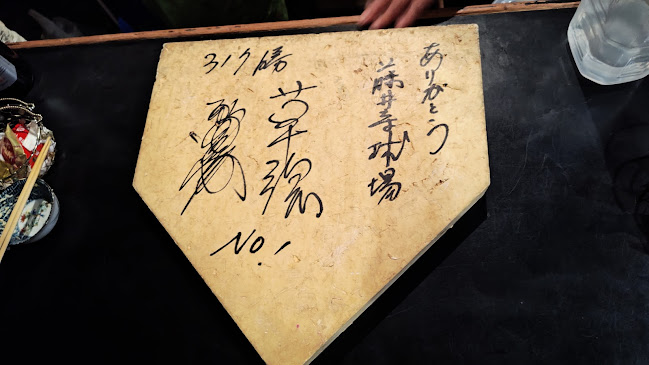 ありがとう
藤井寺球場
317勝
草魂
No.1